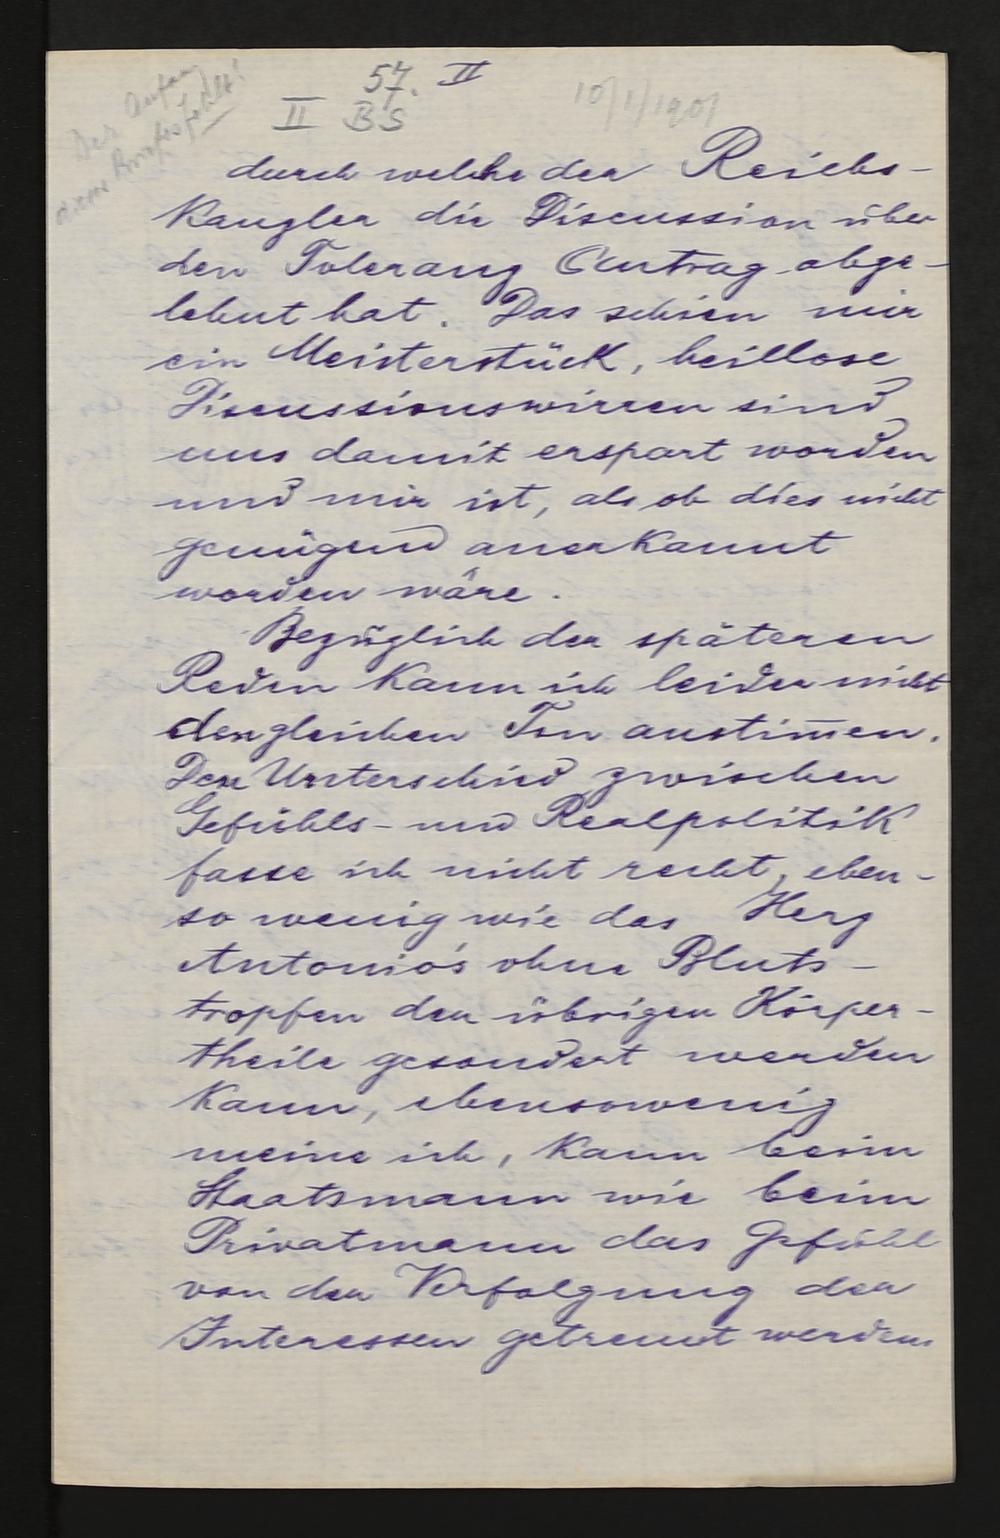 Der Anfang
dieses Briefes fehlt!
57. II
II BS
10/1/1901
durch welche der Reichs-
Kanzler die Discussion über
den Toleranz Antrag abge-
lehnt hat. Das schien mir
ein Meisterstück, heillose
Discussionswirren sind
uns damit erspart worden
und mir ist, als ob dies nicht
genügend anerkannt
worden wäre.
Bezüglich der späteren
Reden kann ich leider nicht
den gleichen Ton anstim̅en.
Den Unterschied zwischen
Gefühls- und Realpolitik
fasse ich nicht recht, eben-
so wenig wie das Herz
Antonio's ohne Bluts-
tropfen der übrigen Körper-
theile gesondert werden
kann, ebensowenig
meine ich, kann beim
Staatsmann wie beim
Privatmann das Gefühl
von der Verfolgung der
Interessen getrennt werden.